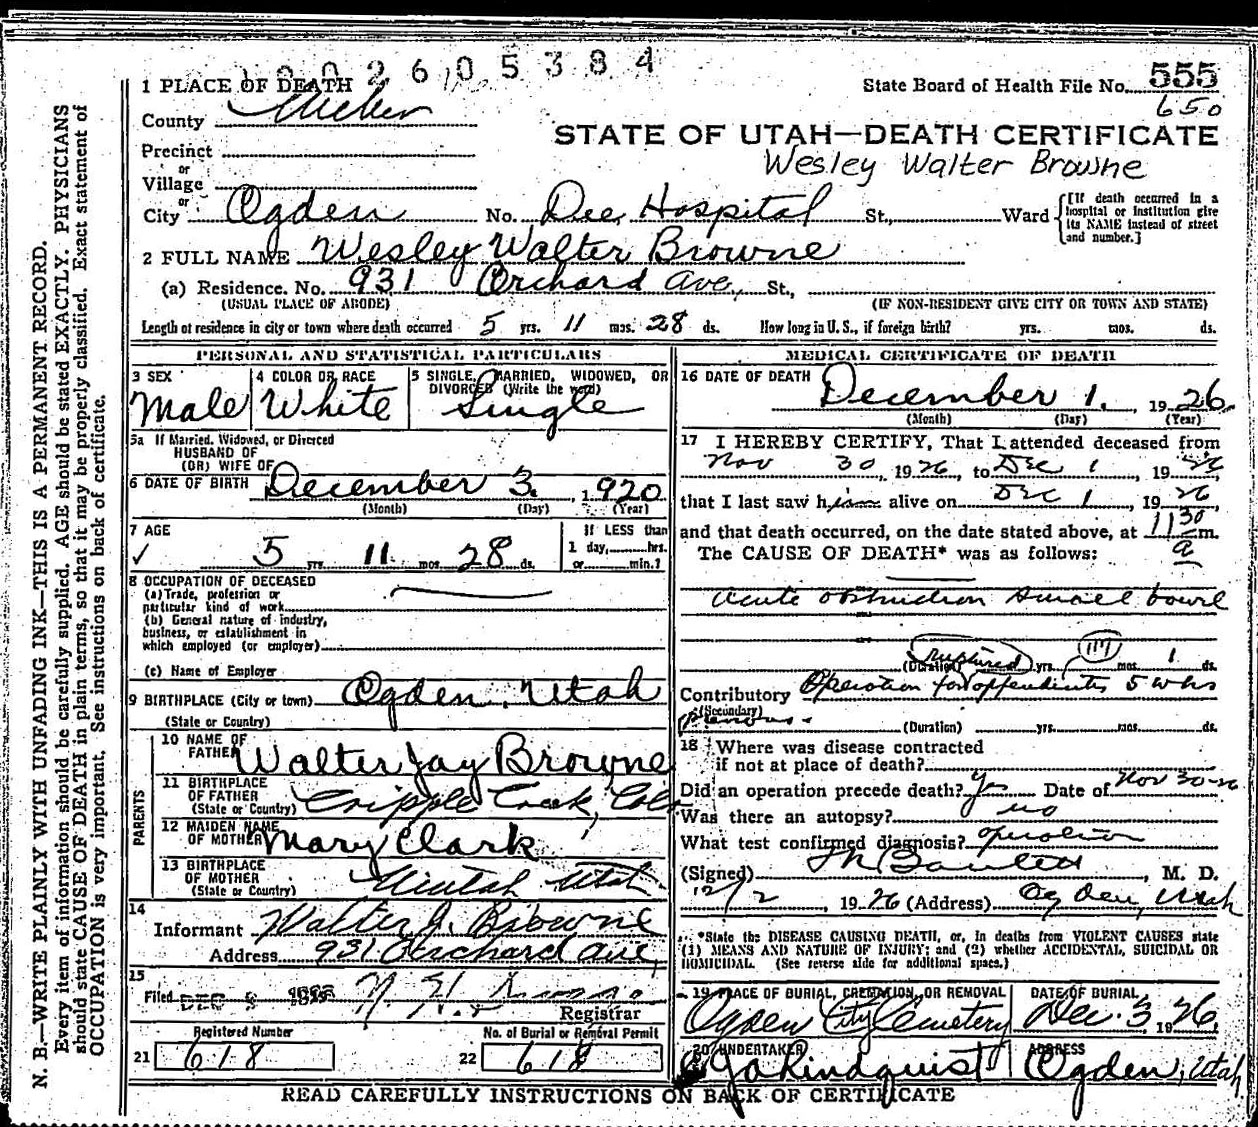 1002605384
1 PLACE OF DEATH
State Board of Health File No. 555
650
County Weber
STATE OF UTAH—DEATH CERTIFICATE
Precinct
Wesley Walter Browne
or
Village
or
City Ogden No. Dee Hospital St., Ward [If death occurred in a hospital or institution give its NAME instead of street and number.]
2 FULL NAME Wesley Walter Browne
(a) Residence. No. 931 Orchard Ave, St.,
(USUAL PLACE OF ABODE) (IF NON-RESIDENT GIVE CITY OR TOWN AND STATE)
Length of residence in city or town where death occurred 5 yrs. 11 mos. 28 ds. How long in U. S., if foreign birth? yrs. mos. ds.
PERSONAL AND STATISTICAL PARTICULARS
3 SEX 4 COLOR OR RACE 5 SINGLE, MARRIED, WIDOWED, OR DIVORCED (Write the word)
Male White Single
5a If Married, Widowed, or Divorced
HUSBAND OF
(OR) WIFE OF
6 DATE OF BIRTH December 3. 1920
(Month) (Day) (Year)
7 AGE If LESS than
✓ 5 yrs 11 mos 28 ds. 1 day,......hrs.
or......min.?
8 OCCUPATION OF DECEASED
(a) Trade, profession or
particular kind of work
(b) General nature of industry,
business, or establishment in
which employed (or employer)
(c) Name of Employer
9 BIRTHPLACE (City or town) Ogden, Utah
(State or Country)
PARENTS
10 NAME OF
FATHER Walter Jay Browne
11 BIRTHPLACE
OF FATHER
(State or Country) Cripple Creek, Colo
12 MAIDEN NAME
OF MOTHER Mary Clark
13 BIRTHPLACE
OF MOTHER
(State or Country) Uintah Utah.
14
Informant Walter J. Browne
Address 931 Orchard Ave,
15
Filed DEC
Registrar
Registered Number No. of Burial or Removal Permit
21 618 22 618
MEDICAL CERTIFICATE OF DEATH
16 DATE OF DEATH December 1. , 1926.
(Month) (Day) (Year)
17 I HEREBY CERTIFY, That I attended deceased from
Nov 30, 1926, to Dec 1 1926
that I last saw him alive on Dec 1, 1926
and that death occurred, on the date stated above, at 11 30 m.
a
The CAUSE OF DEATH* was as follows:
acute obstruction small bowel
ruptured
(Duration) yrs. mos. 1 ds.
Contributory Operation for appendicitis 5 wks
(Secondary)
previous.
(Duration) yrs. mos. ds.
18 Where was disease contracted
if not at place of death?
Did an operation precede death? Yes Date of Nov 30-26
Was there an autopsy? no
What test confirmed diagnosis? operation
(Signed) , M. D.
12/2, 1926 (Address) Ogden, Utah
*State the DISEASE CAUSING DEATH, or, in deaths from VIOLENT CAUSES state
(1) MEANS AND NATURE OF INJURY; and (2) whether ACCIDENTAL, SUICIDAL OR
HOMICIDAL. (See reverse side for additional space.)
19 PLACE OF BURIAL, CREMATION, OR REMOVAL DATE OF BURIAL
Ogden City Cemetery Dec. 3, 1926,
20 UNDERTAKER ADDRESS
Lindquist Ogden, Utah.
READ CAREFULLY INSTRUCTIONS ON BACK OF CERTIFICATE
N. B.—WRITE PLAINLY WITH UNFADING INK—THIS IS A PERMANENT RECORD.
Every item of information should be carefully supplied. AGE should be stated EXACTLY. PHYSICIANS
should state CAUSE OF DEATH in plain terms, so that it may be properly classified. Exact statement of
OCCUPATION is very important. See instructions on back of certificate.